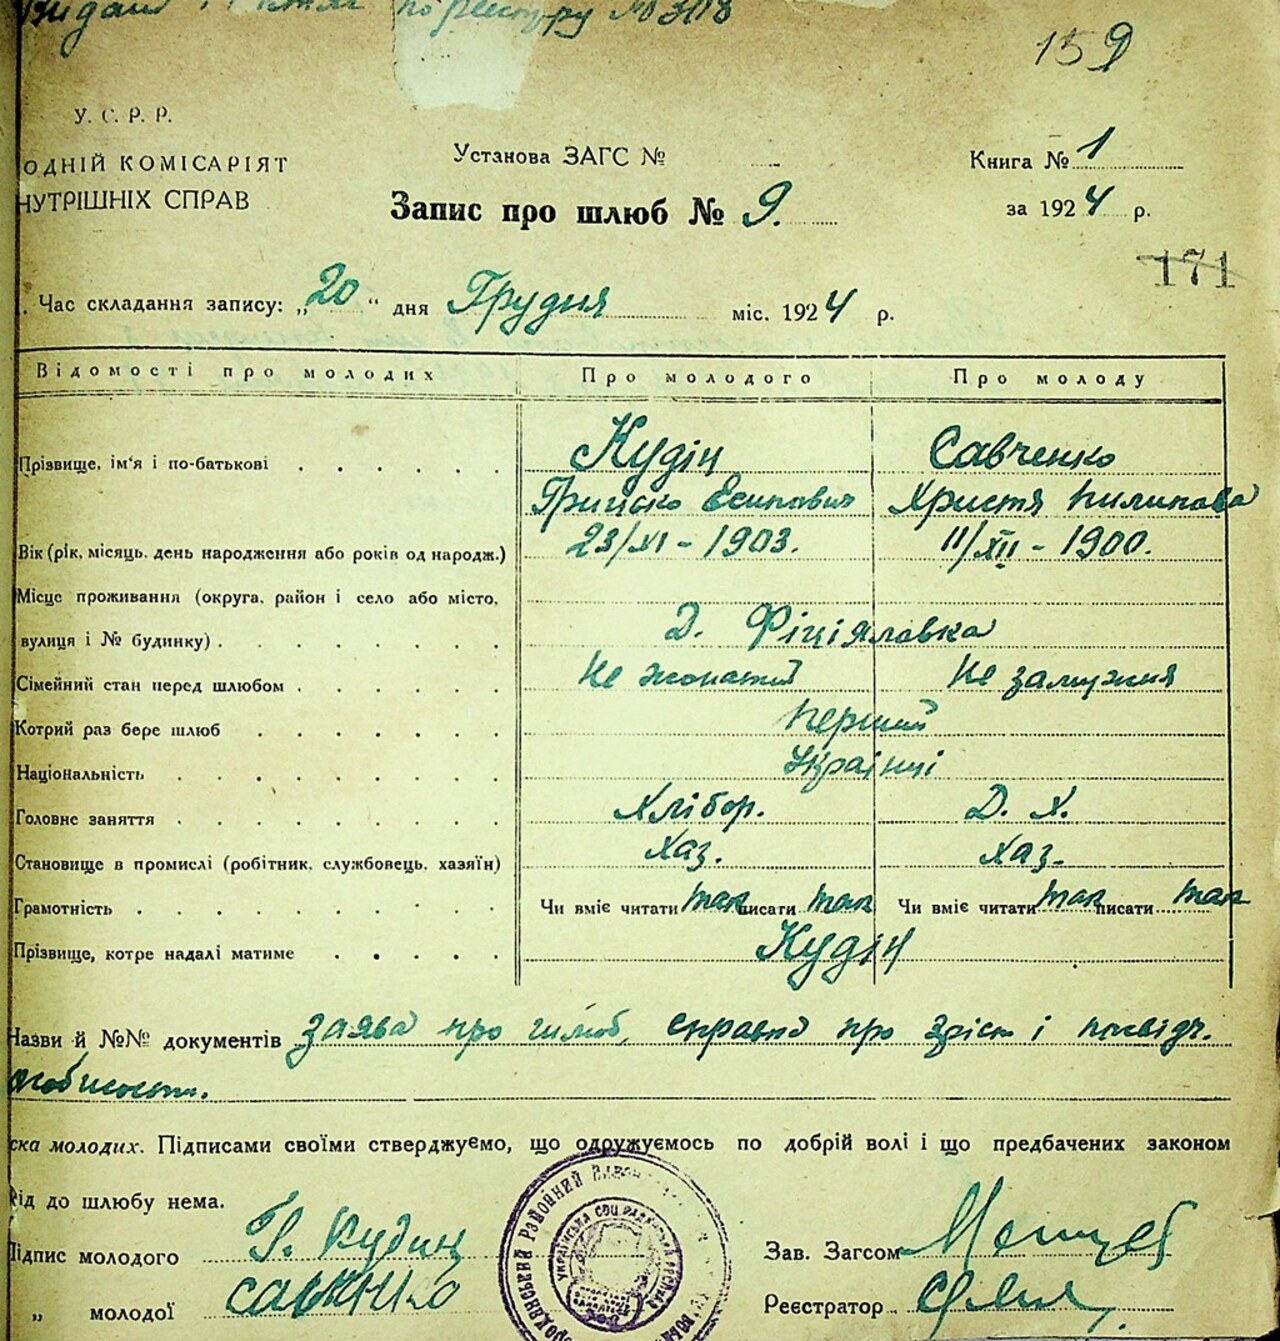 по реєстру № 308
159
У. С. Р. Р.
ОДНІЙ КОМІСАРІЯТ
НУТРІШНІХ СПРАВ
Установа ЗАГС №
Книга № 1
Запис про шлюб № 9.
за 1924 р.
171
Час складання запису: „20“ дня Грудня міс. 1924 р.
Відомості про молодих Про молодого Про молоду
Прізвище, ім'я і по-батькові . . . . . . Кудін Савченко
Грицько Єсипович Христя Пилипова
Вік (рік, місяць, день народження або років од народж.) 23/XI - 1903. 11/XII - 1900.
Місце проживання (округа, район і село або місто,
вулиця і № будинку) . . . . . . . . Д. Фіціяловка
Сімейний стан перед шлюбом . . . . . . Не жонатий Не замужня
Котрий раз бере шлюб . . . . . . . Перший
Національність . . . . . . . . . Українці
Головне заняття . . . . . . . . . Хлібор. Д. Х.
Становище в промислі (робітник, службовець, хазяїн) Хаз. Хаз.
Грамотність . . . . . . . . . . Чи вміє читати так писати так Чи вміє читати так писати так
Прізвище, котре надалі матиме . . . . . Кудін
Назви й №№ документів заява про шлюб, справка про зріст і посвідч.
особистости.
ска молодих. Підписами своїми стверджуємо, що одружуємось по добрій волі і що предбачених законом
від до шлюбу нема.
Підпис молодого Г. Кудин Зав. Загсом
„ молодої савчнко Реєстратор